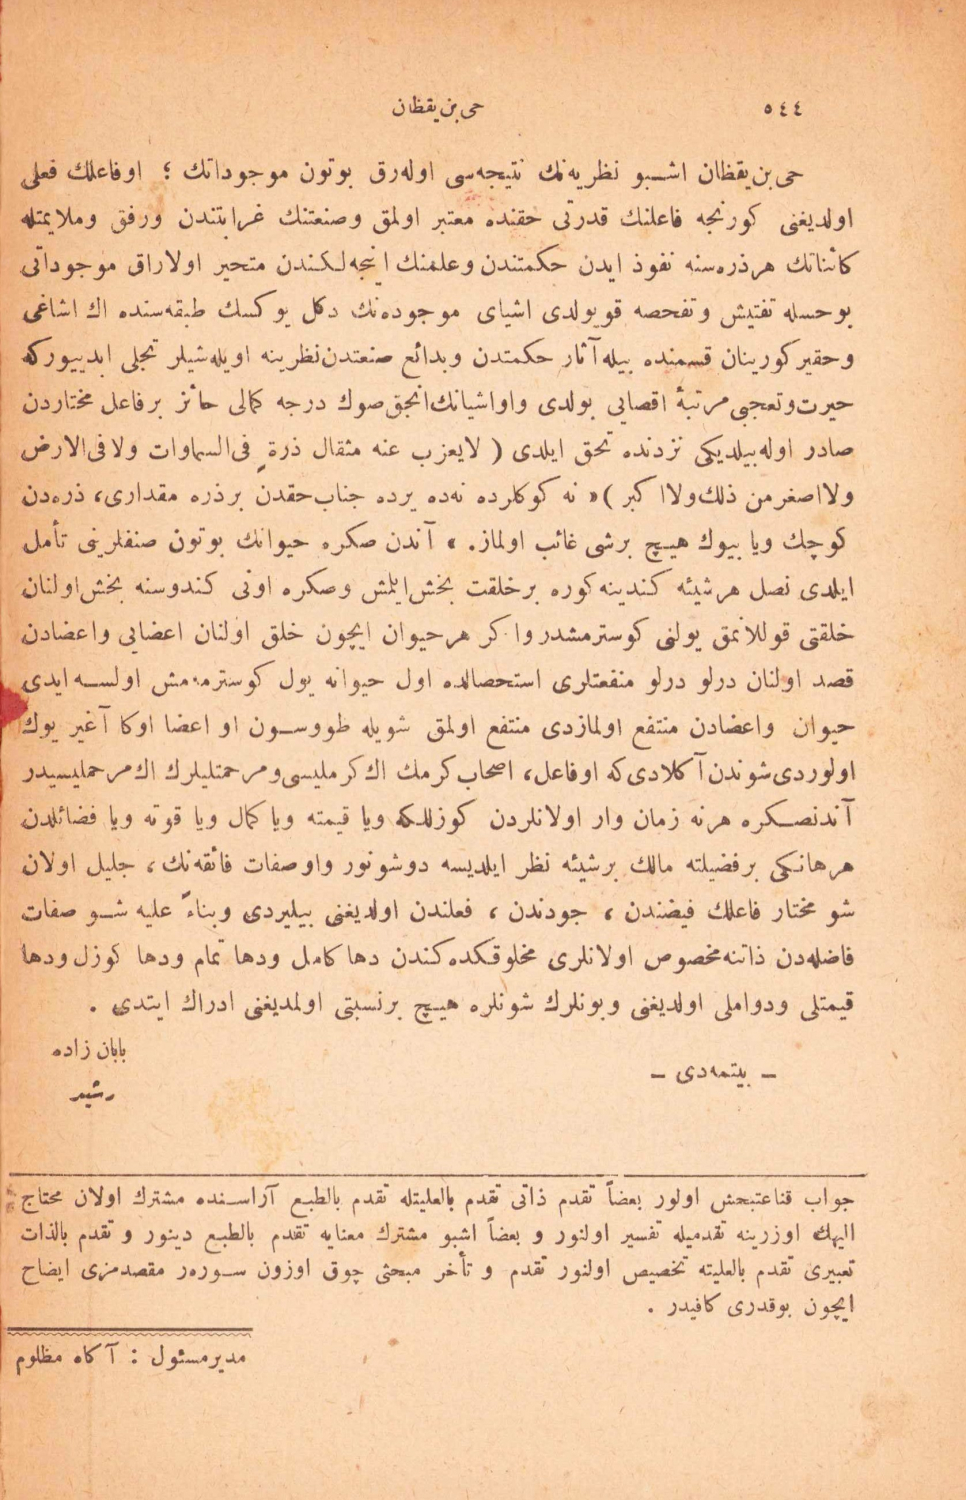 ٥٤٤
حی بن یقظان
حی بن یقظان اشـبو نظریه‌نك نتیجه‌سی اوله‌رق بوتون موجوداتك ؛ اوفاعلك فعلی
اولدیغنی كورنجه فاعلنك قدرتی حقنده معتبر اولمق وصنعتنك غرابتندن ورفق وملایمتله
كائناتك هرذره‌سنه نفوذ ایدن حكمتندن وعلمنك اینجه‌لكندن متحیر اولاراق موجوداتی
بوحسله تفتیش وتفحصه قویولدی اشیای موجوده‌نك دكل یوكسك طبقه‌سنده اك اشاغی
وحقیر كورینان قسمنده بیله آثار حكمتدن وبدائع صنعتدن نظرینه اویله‌شیلر تجلی ایدییوركه
حیرت وتعجبی مرتبهٔ اقصایی بولدی واواشیانك‌انجق صوك درجه كمالی حائز برفاعل مختاردن
صادر اوله‌بیلدیكی نزدنده تحقق ایلدی ( لایعزب عنه مثقال ذرةٍ فی‌السماوات ولافی‌الارض
ولااصغرمن ذلك‌ولااكبر )« نه كوكلرده نه‌ده یرده جناب‌حقدن برذره مقداری، ذره‌دن
كوچك ویا بیوك هیـچ برشی غائب اولماز. » آندن صكره حیوانك بوتون صنفلرینی تأمل
ایلدی نصل هرشیئه كندینه‌كوره برخلقت بخش‌ایلمش وصكره اونی كندوسنه بخش‌اولنان
خلقتی قوللانمق یولنی كوسترمشدر واكر هرحیوان ایچون خلق اولنان اعضایی واعضادن
قصد اولنان درلو درلو منفعتلری استحصالده اول حیوانه یول كوسترمه‌مش اولسـه ایدی
حیوان واعضادن منتفع اولمازدی منتفع اولمق شویله طوورسـون او اعضا اوكا آغیر یوك
اولوردی‌شوندن آكلادی‌كه اوفاعل، اصحاب‌كرمك اك‌كرملیسی ومرحمتلیلرك اك‌مرحملیسیدر
آندنصـكره هرنه زمان وار اولانلردن كوزللكه ویا قیمته ویا كمال ویا قوته ویا فضائلدن
هرهانكی برفضیلته مالك برشیئه نظر ایلدیسه دوشونور واوصفات فائقه‌نك، جلیل اولان
شو مختار فاعلك فیضندن ، جودندن ، فعلندن اولدیغنی بیلیردی وبناءً علیه شـو صفات
فاضله‌دن ذاتنه‌مخصوص اولانلری مخلوقكده‌كندن دها كامل ودها تمام ودها كوزل ودها
قیمتلی ودواملی اولدیغنی وبونلرك شونلره هیـچ برنسبتی اولمدیغنی ادراك ایتدی .
ـ بیتمه‌دی ـ
بابان زاده
رشید
جواب قناعتبخش اولور بعضاً تقدم ذاتی تقدم بالعلیتله تقدم بالطبع آراسـنده مشترك اولان محتاج
الیهك اوزرینه تقدمیله تفسیر اولنور و بعضاً اشبو مشترك معنایه تقدم بالطبع دینور و تقدم بالذات
تعبیری تقدم بالعلیته تخصیص اولنور تقدم و تأخر مبحثی چوق اوزون سـورەر مقصدمزی ایضاح
ایچون بوقدری كافیدر .
مدیرمسئول : آكاه مظلوم